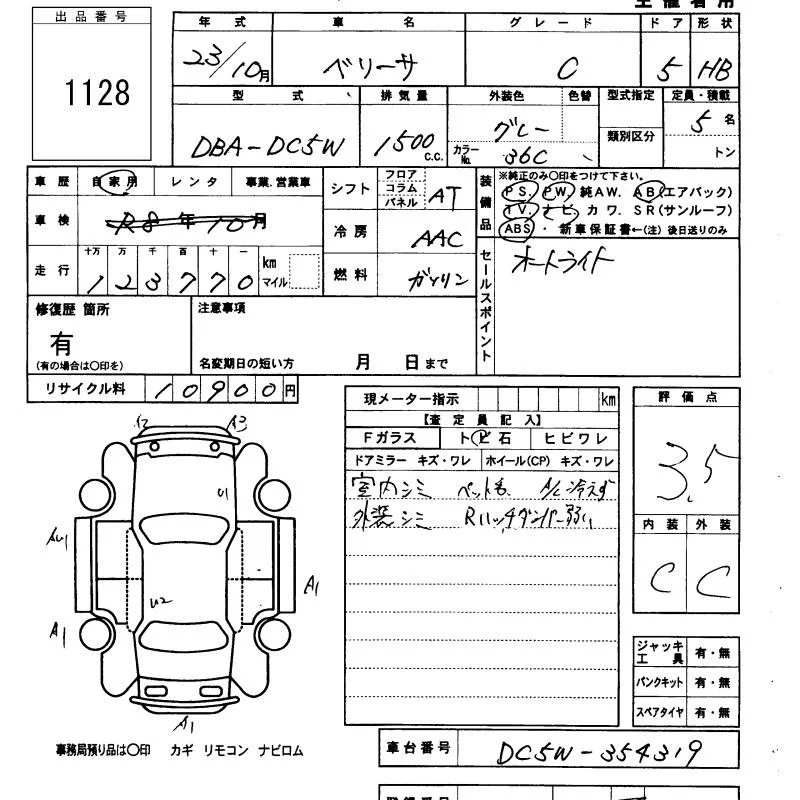 出品番号
1128
年式 車名 グレード ドア 形状
23/10月 ベリーサ C 5 HB
型式 排気量 外装色 色替 型式指定 定員・積載
DBA-DC5W 1500 C.C. グレー カラーNo. 36C 類別区分 5名 トン
車歴 自家用 レンタ 事業.営業車
車検 R8年10月
走行 十万 万 千 百 十 一 km マイル
123770
シフト フロア コラム パネル AT
冷房 AAC
燃料 ガソリン
装備品 ※純正のみ〇印をつけて下さい。
PS. PW. 純AW. AB(エアバック)
TV. ナビ. カワ. SR(サンルーフ)
ABS・新車保証書←(注)後日送りのみ
セールスポイント オートライト
修復歴 箇所
有
(有の場合は〇印を)
注意事項
名変期日の短い方 月 日まで
リサイクル料 10900円
A2 A3
U1
AU1
U2
A1
A1
A1
事務局預り品は〇印 カギ リモコン ナビロム
現メーター指示 km
【査定員記入】
Fガラス トビ石 ヒビワレ
ドアミラー キズ・ワレ ホイール(CP) キズ・ワレ
室内シミ ペット毛 A/C冷えず
外装シミ Rハッチダンパー弱い
評価点
3.5
内装 外装
C C
ジャッキ工具 有・無
パンクキット 有・無
スペアタイヤ 有・無
車台番号 DC5W-354319